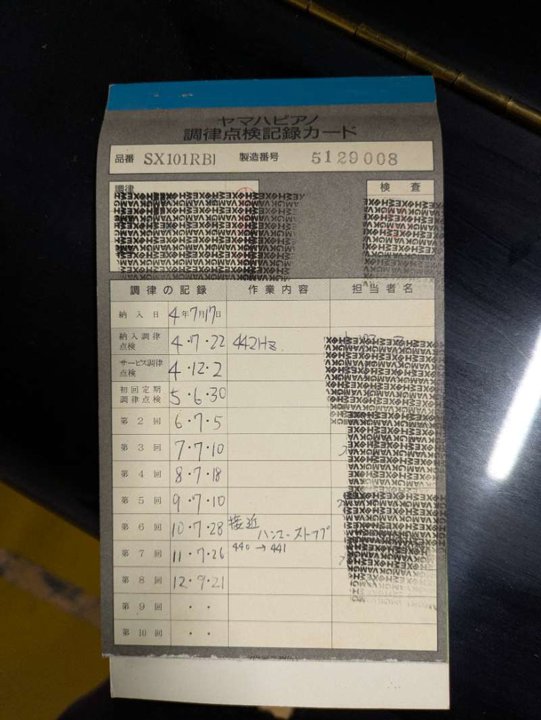 ヤマハピアノ
調律点検記録カード
品番 SX101RBl 製造番号 5129008
調律
検査
調律の記録 作業内容 担当者名
納入日 4年7月17日
納入調律点検 4・7・22 442Hz.
サービス調律点検 4・12・2
初回定期調律点検 5・6・30
第2回 6・7・5
第3回 7・7・10
第4回 8・7・18
第5回 9・7・10
第6回 10・7・28 接近 ハンマーストップ
第7回 11・7・26 440→441
第8回 12・9・21
第9回 ・・
第10回 ・・